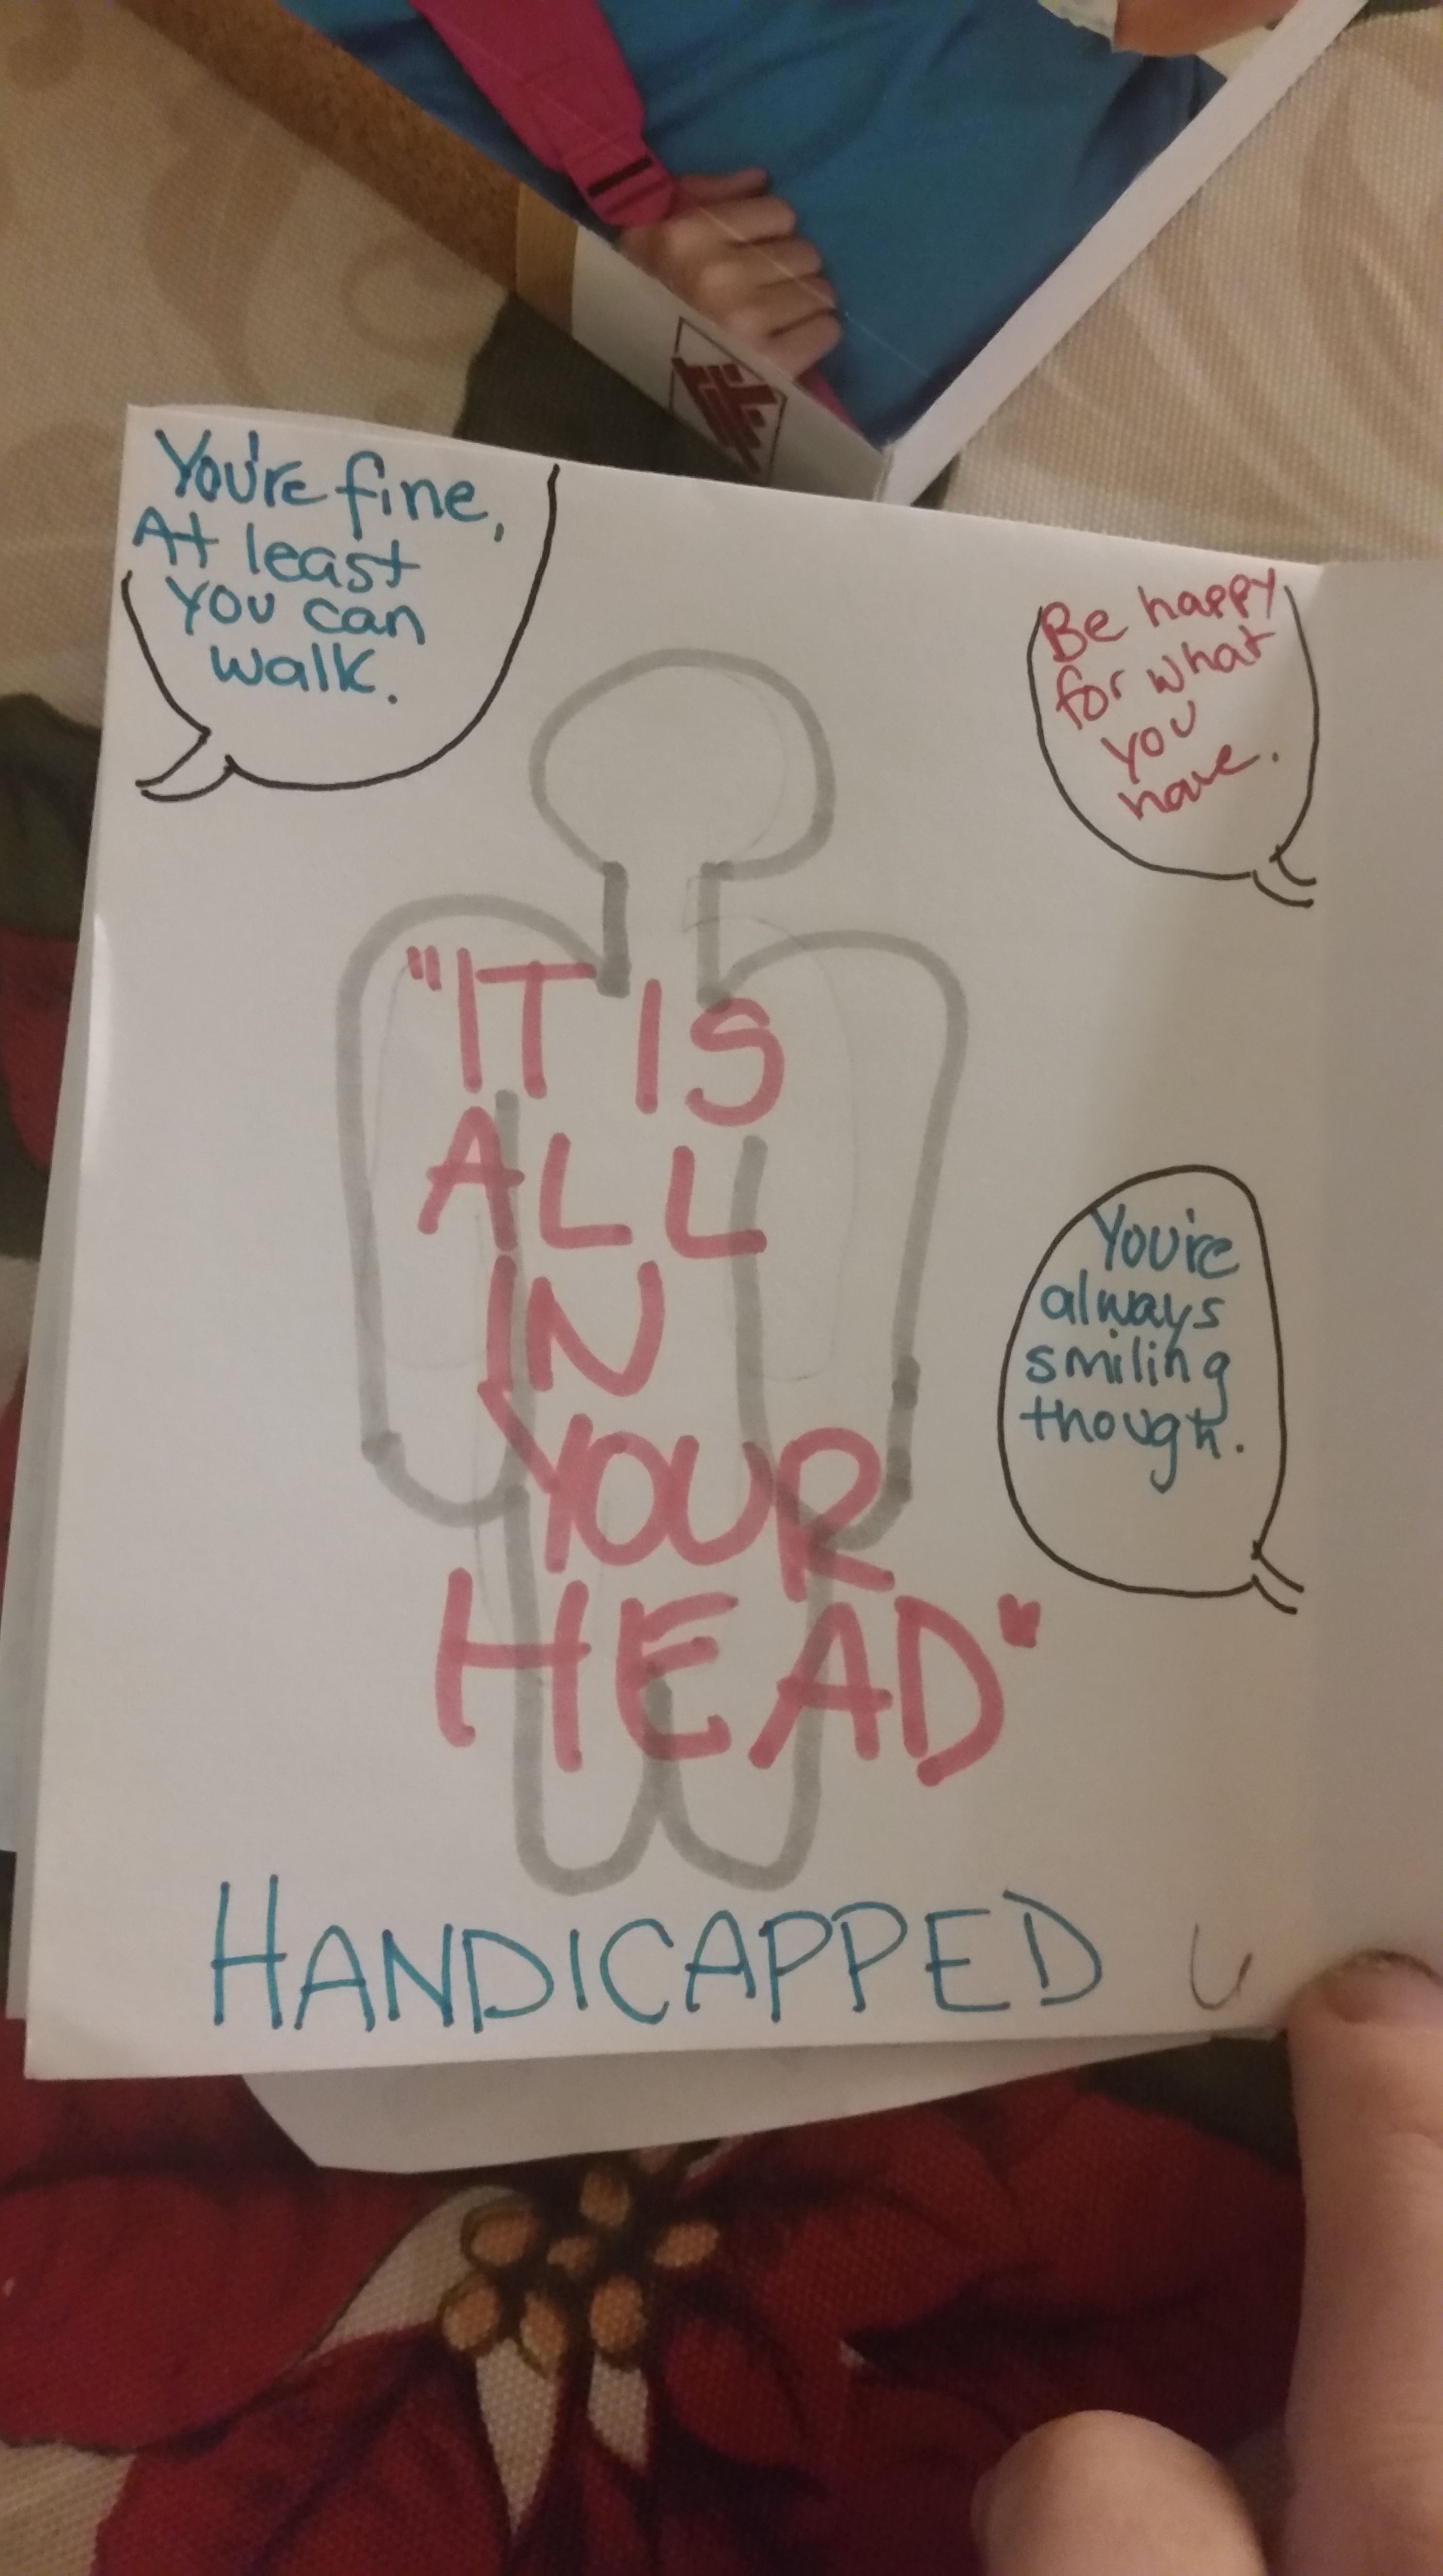 You're fine,
At least
you can
walk.
Be happy
for what
you
have.
"IT IS
ALL
IN
YOUR
HEAD"
You're
always
smiling
though.
HANDICAPPED